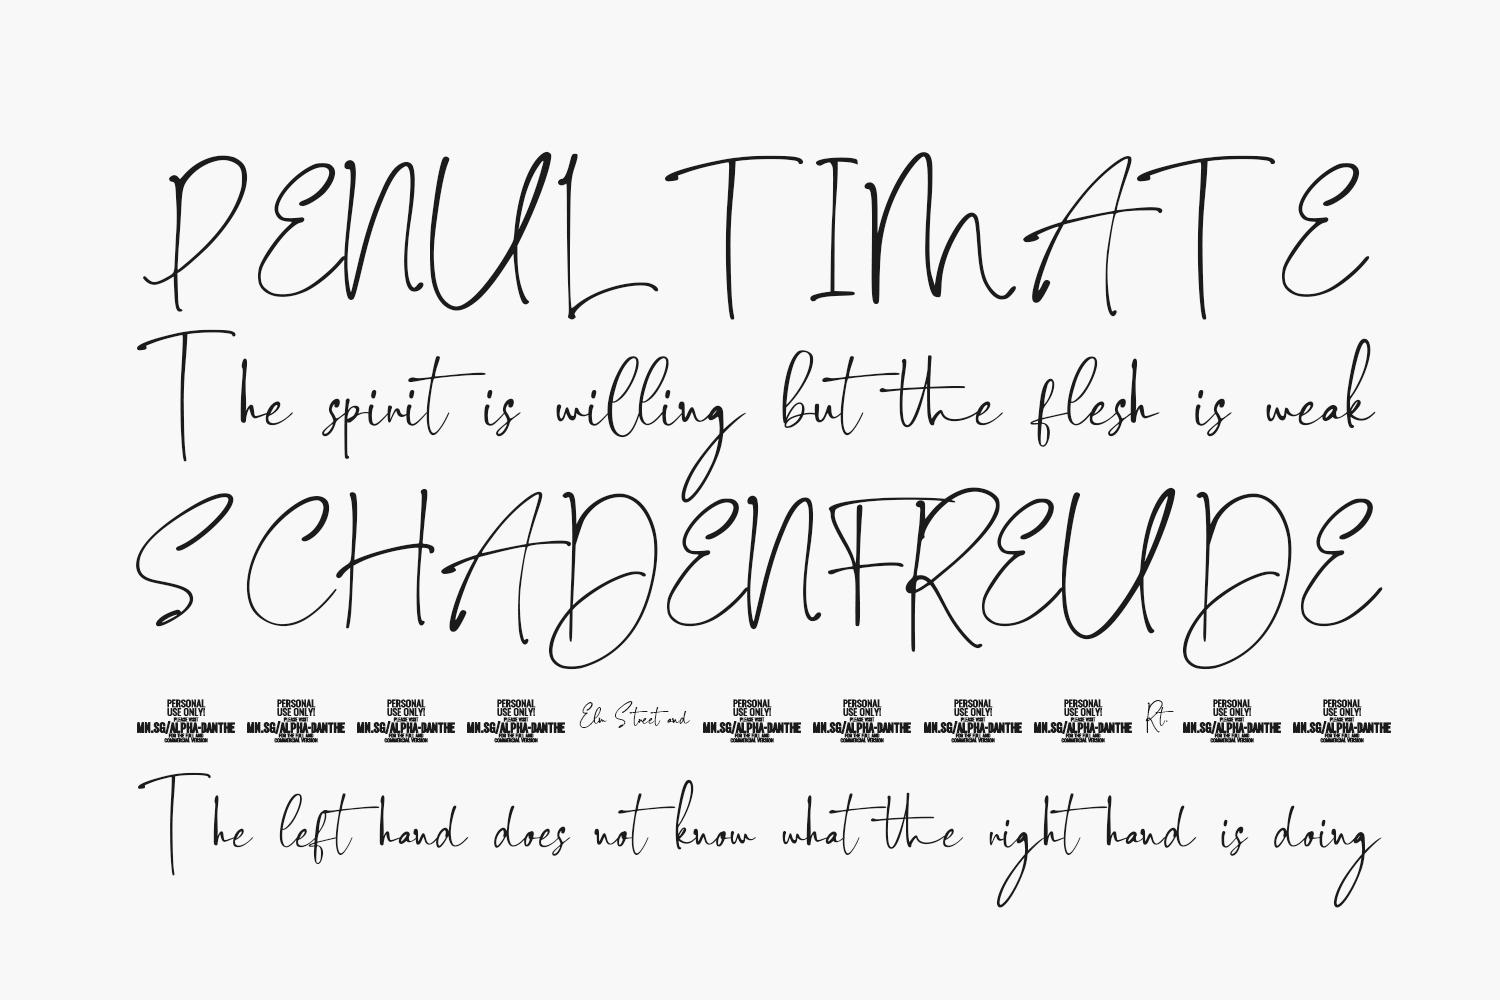 PENULTIMATE
The spirit is willing but the flesh is weak
SCHADENFREUDE
PERSONAL USE ONLY! PLEASE VISIT MN.SG/ALPHA-DANTHE FOR THE FULL AND COMMERCIAL VERSION PERSONAL USE ONLY! PLEASE VISIT MN.SG/ALPHA-DANTHE FOR THE FULL AND COMMERCIAL VERSION PERSONAL USE ONLY! PLEASE VISIT MN.SG/ALPHA-DANTHE FOR THE FULL AND COMMERCIAL VERSION PERSONAL USE ONLY! PLEASE VISIT MN.SG/ALPHA-DANTHE FOR THE FULL AND COMMERCIAL VERSION Elm Street and PERSONAL USE ONLY! PLEASE VISIT MN.SG/ALPHA-DANTHE FOR THE FULL AND COMMERCIAL VERSION PERSONAL USE ONLY! PLEASE VISIT MN.SG/ALPHA-DANTHE FOR THE FULL AND COMMERCIAL VERSION PERSONAL USE ONLY! PLEASE VISIT MN.SG/ALPHA-DANTHE FOR THE FULL AND COMMERCIAL VERSION PERSONAL USE ONLY! PLEASE VISIT MN.SG/ALPHA-DANTHE FOR THE FULL AND COMMERCIAL VERSION Rt. PERSONAL USE ONLY! PLEASE VISIT MN.SG/ALPHA-DANTHE FOR THE FULL AND COMMERCIAL VERSION PERSONAL USE ONLY! PLEASE VISIT MN.SG/ALPHA-DANTHE FOR THE FULL AND COMMERCIAL VERSION
The left hand does not know what the right hand is doing